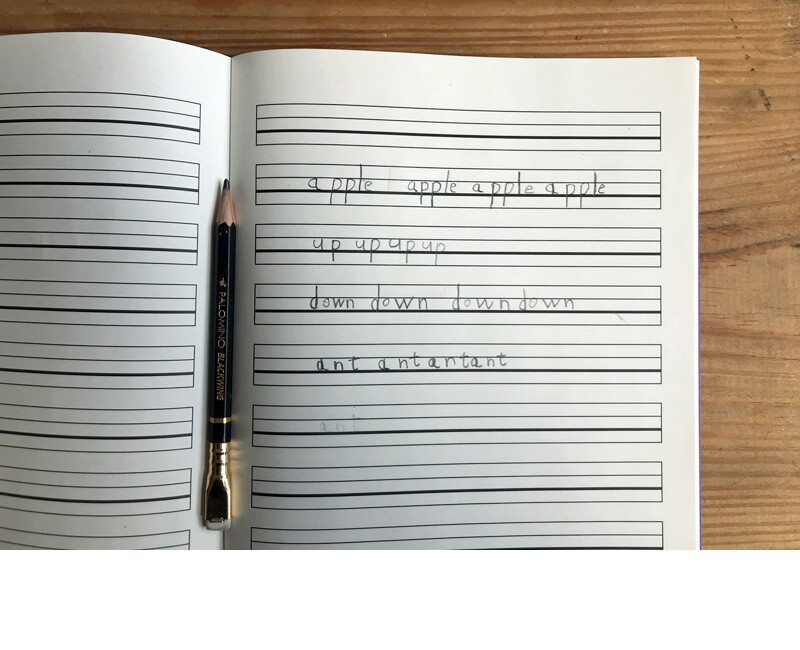 apple apple apple apple
up up up up
down down down down
ant ant ant ant
ant
PALOMINO BLACKWING